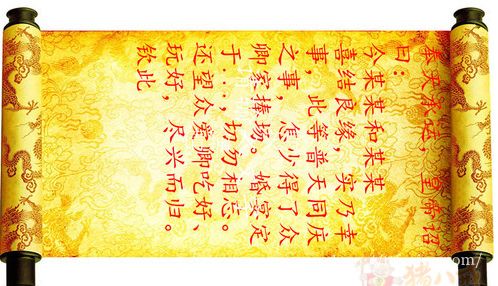 奉天承运，皇帝诏
曰：
今某某和某某
喜结良缘，实乃幸
事，此等普天同庆
之事，怎少得了众
卿家捧场。婚宴定
于...，切勿相忘。
还望众爱卿吃好、
玩好，尽兴而归。
钦此
com/
猪八